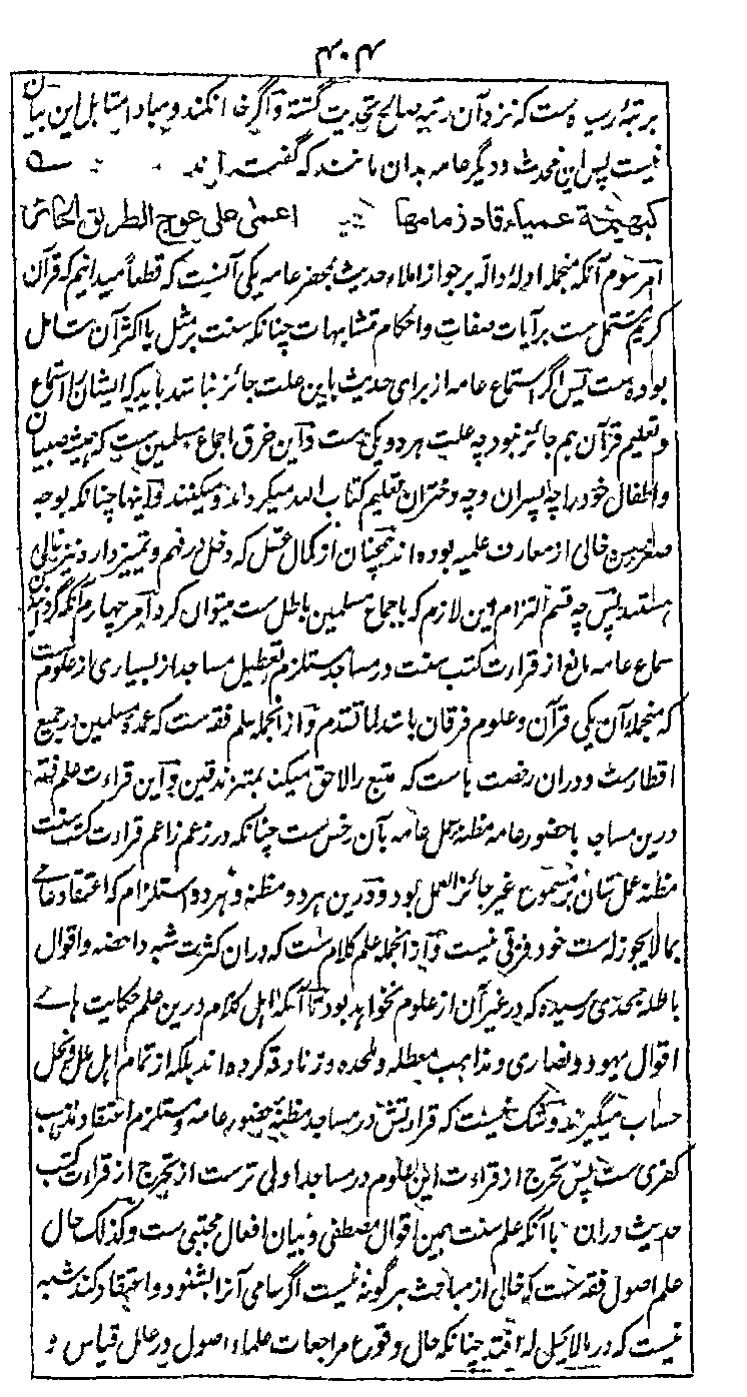 ۴۰۴
برتبهٔ رسیده ست که نزد آن رتبه صالح تحدیث گشته و اگر خدا نکند و مباد مقابل این بیان
نیست پس این محدث و دیگر عامه بدان مانند که گفته اند
کبهیمة عمیاء قاد زمامها اعمی علی عوج الطریق الحائر
امر سوم آنکه منجمله ادلهٔ داله بر جواز املاء حدیث بمحضر عامه یکی آنست که قطعاً میدانیم که قرآن
کریم مشتمل ست بر آیات صفات و احکام متشابهات چنانکه سنت بر مثل یا اکثر آن شامل
بوده ست پس اگر استماع عامه از برای حدیث باین علت جائز نباشد باید که ایشان را استماع
و تعلیم قرآن هم جائز نبود چه علت هر دو یکی ست و این خرق اجماع مسلمین ست که همیشه صبیان
و اطفال خود را چه پسران و چه دختران تعلیم کتاب الله میکرده اند و میکنند و اینها چنانکه بوجه
صغر سن خالی از معارف علمیه بوده اند همچنان از کمال عقل که دخل در فهم و تمییز دارد نیز خالی
هستند پس چه قسم التزام این لازم که باجماع مسلمین باطل ست میتوان کرد امر چهارم آنکه گردانیدن
سماع عامه مانع از قراءت کتب سنت در مساجد مستلزم تعطیل مساجد از بسیاری از علوم ست
که منجملهٔ آن یکی قرآن و علوم فرقان باشد لما تقدم و از انجمله علم فقه ست که عمدهٔ مسلمین در جمیع
اقطارست و در ان رخصت هاست که متبع را لاحق میکند بمتزندقین و این قراءت علم فقه
درین مساجد با حضور عامه مظنهٔ عمل عامه بآن رخص ست چنانکه در زعم زاعم قراءت کتب سنت
مظنهٔ عمل شان بر مسموع غیر جائز العمل بود و درین هر دو مظنه و هر دو استلزام که اعتقاد عامی
بما لا یجوز له است خود فرقی نیست و از انجمله علم کلام ست که دران کثرت شبه داحضه و اقوال
باطله بحدی رسیده که در غیر آن از علوم نخواهد بود تا آنکه اهل کلام درین علم حکایت هاے
اقوال یهود و نصاری و مذاهب معطله و ملحده و زنادقه کرده اند بلکه از تمام اهل ملل و نحل
حساب میگیرند و شک نیست که قراءتش در مساجد مظنهٔ حضور عامه و مستلزم اعتقاد مذهب
کفری ست پس تحرج از قراءت این علوم در مساجد اولی ترست از تحرج از قراءت کتب
حدیث دران با آنکه علم سنت بهین اقوال مصطفی و بیان افعال مجتبی ست و کذلک حال
علم اصول فقه ست که خالی از مباحث هرگونه نیست اگر سامی آنرا بشنود و اعتقاد کند شبه
نیست که در مالا یحل له افتد چنانکه حال وقوع مراجعات علماء اصول در علل قیاس و